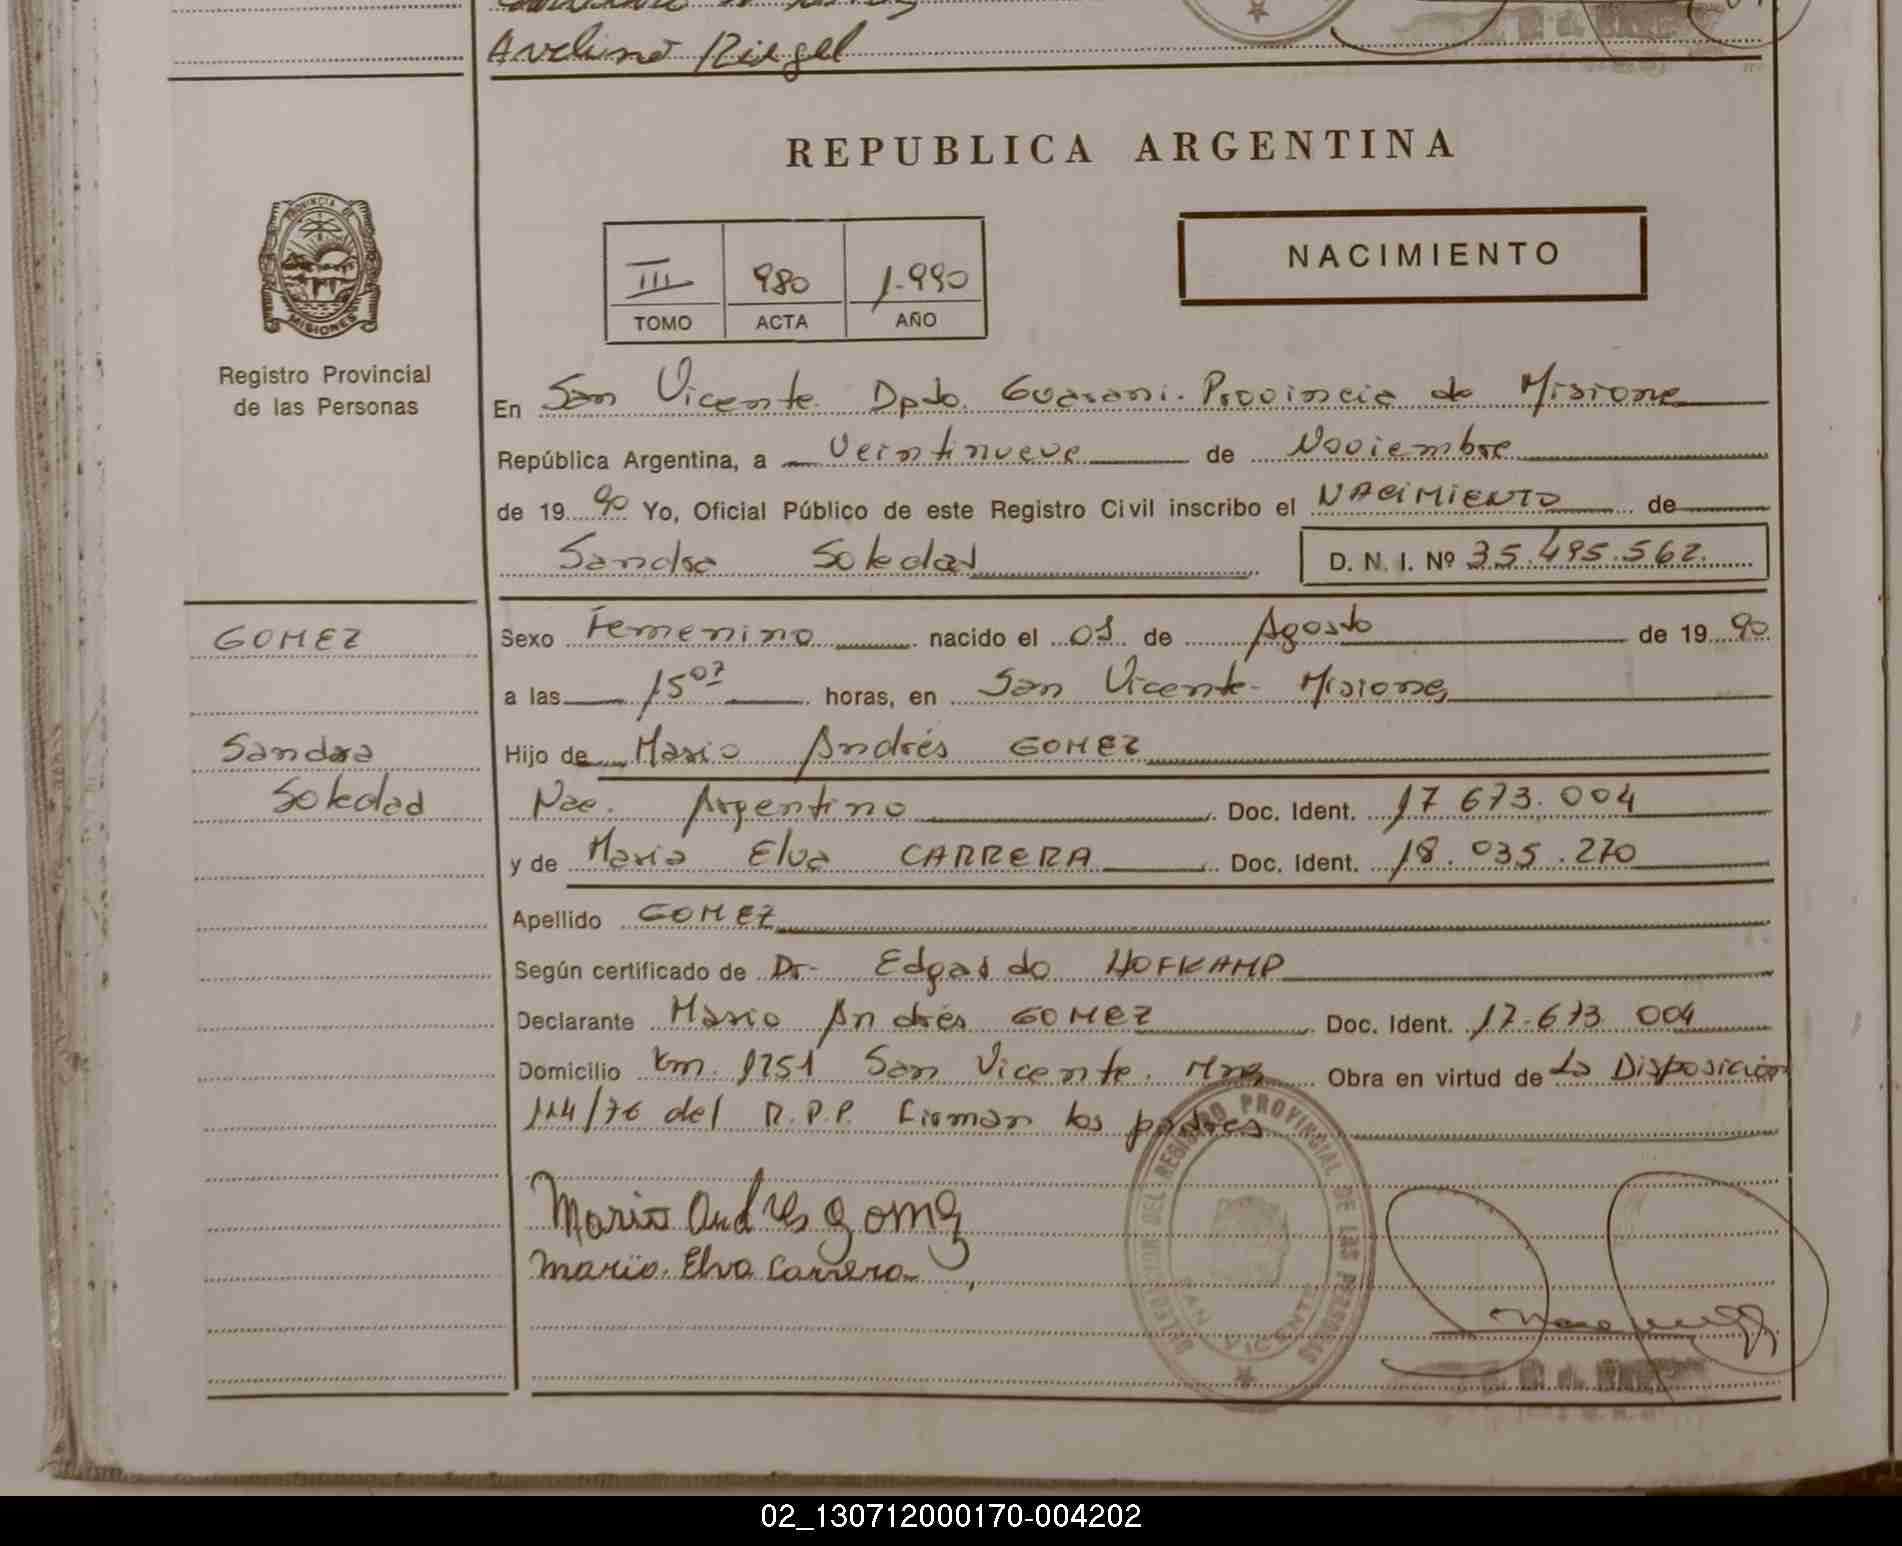 Avelino Riegel
REPUBLICA ARGENTINA
PROVINCIA DE
MISIONES
Registro Provincial
de las Personas
III 980 1.990
TOMO ACTA AÑO
NACIMIENTO
En San Vicente. Dpto. Guarani. Provincia de Misiones
República Argentina, a veintinueve de Noviembre
de 1990 Yo, Oficial Público de este Registro Civil inscribo el NACIMIENTO de
Sandra Soledad D. N. I. Nº 35.495.562
GOMEZ
Sandra
Soledad
Sexo Femenino nacido el 01 de Agosto de 1990
a las 15 07 horas, en San Vicente - Misiones
Hijo de Mario Andrés GOMEZ
Nac. Argentino Doc. Ident. 17 673.004
y de Maria Elva CARRERA Doc. Ident. 18.035.270
Apellido GOMEZ
Según certificado de Dr. Edgardo HOFKAMP
Declarante Mario Andrés GOMEZ Doc. Ident. 17.673 004
Domicilio km. 1251 San Vicente. Mnes Obra en virtud de La Disposición
114/76 del R.P.P. Firman los padres
Mario Andres gomez
Maria Elva Carrera
DEL REGISTRO PROVINCIAL DE LAS PERSONAS
SAN VICENTE
02_130712000170-004202